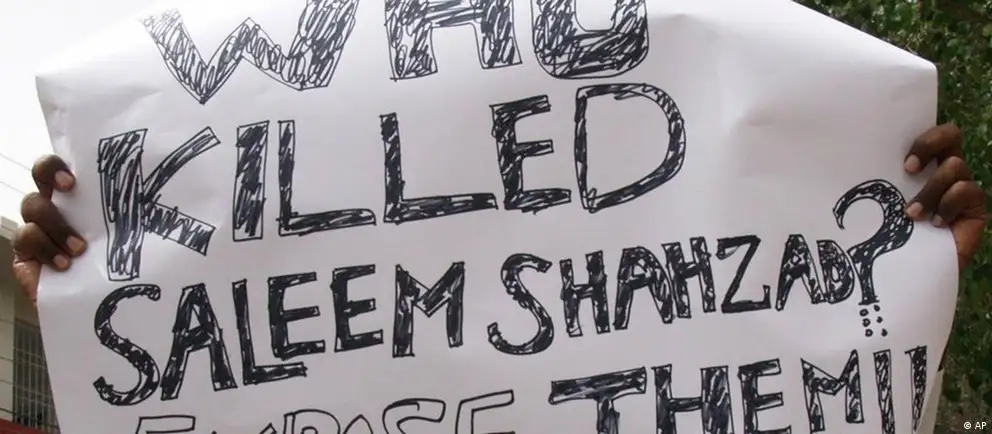 WHO
KILLED
SALEEM SHAHZAD?
EXPOSE THEM!!
© AP